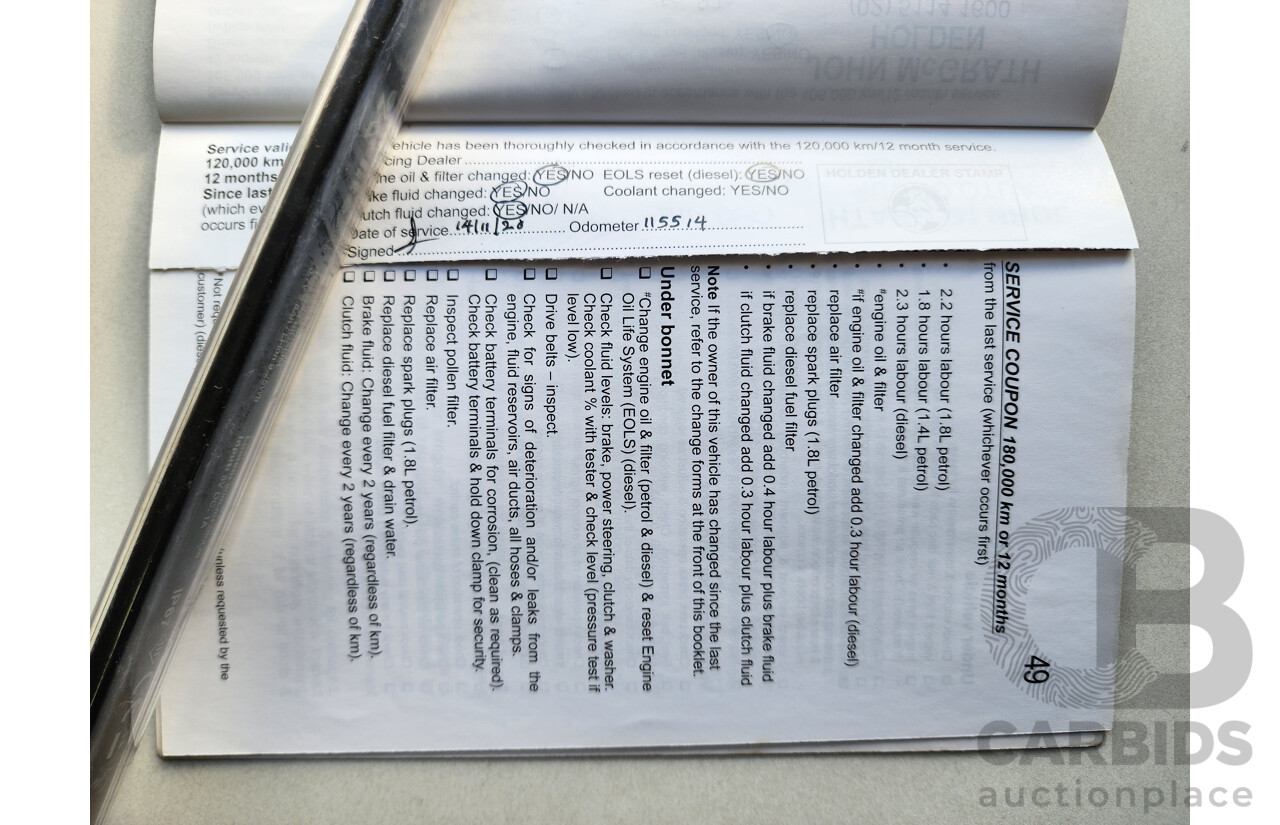 Service vali
120,000 km
12 months
Since last
(which ev
occurs fi
ehicle has been thoroughly checked in accordance with the 120,000 km/12 month service.
cing Dealer
ne oil & filter changed: YES/NO EOLS reset (diesel): YES/NO
ke fluid changed: YES/NO Coolant changed: YES/NO
utch fluid changed: YES/NO/ N/A
Date of service 14/11/20 Odometer 115514
Signed
HOLDEN DEALER STAMP
SERVICE COUPON 180,000 km or 12 months
from the last service (whichever occurs first)
49
• 2.2 hours labour (1.8L petrol)
• 1.8 hours labour (1.4L petrol)
• 2.3 hours labour (diesel)
• #engine oil & filter
• #if engine oil & filter changed add 0.3 hour labour (diesel)
• replace air filter
• replace spark plugs (1.8L petrol)
• replace diesel fuel filter
• if brake fluid changed add 0.4 hour labour plus brake fluid
• if clutch fluid changed add 0.3 hour labour plus clutch fluid
Note If the owner of this vehicle has changed since the last
service, refer to the change forms at the front of this booklet.
Under bonnet
❑ #Change engine oil & filter (petrol & diesel) & reset Engine
Oil Life System (EOLS) (diesel).
❑ Check fluid levels: brake, power steering, clutch & washer.
Check coolant % with tester & check level (pressure test if
level low).
❑ Drive belts – inspect.
❑ Check for signs of deterioration and/or leaks from the
engine, fluid reservoirs, air ducts, all hoses & clamps.
❑ Check battery terminals for corrosion, (clean as required).
Check battery terminals & hold down clamp for security.
❑ Inspect pollen filter.
❑ Replace air filter.
❑ Replace spark plugs (1.8L petrol).
❑ Replace diesel fuel filter & drain water.
❑ Brake fluid: Change every 2 years (regardless of km).
❑ Clutch fluid: Change every 2 years (regardless of km).
unless requested by the
customer)
JOHN McGRATH
HOLDEN
(02) 6114 1600
CARBIDS
auctionplace